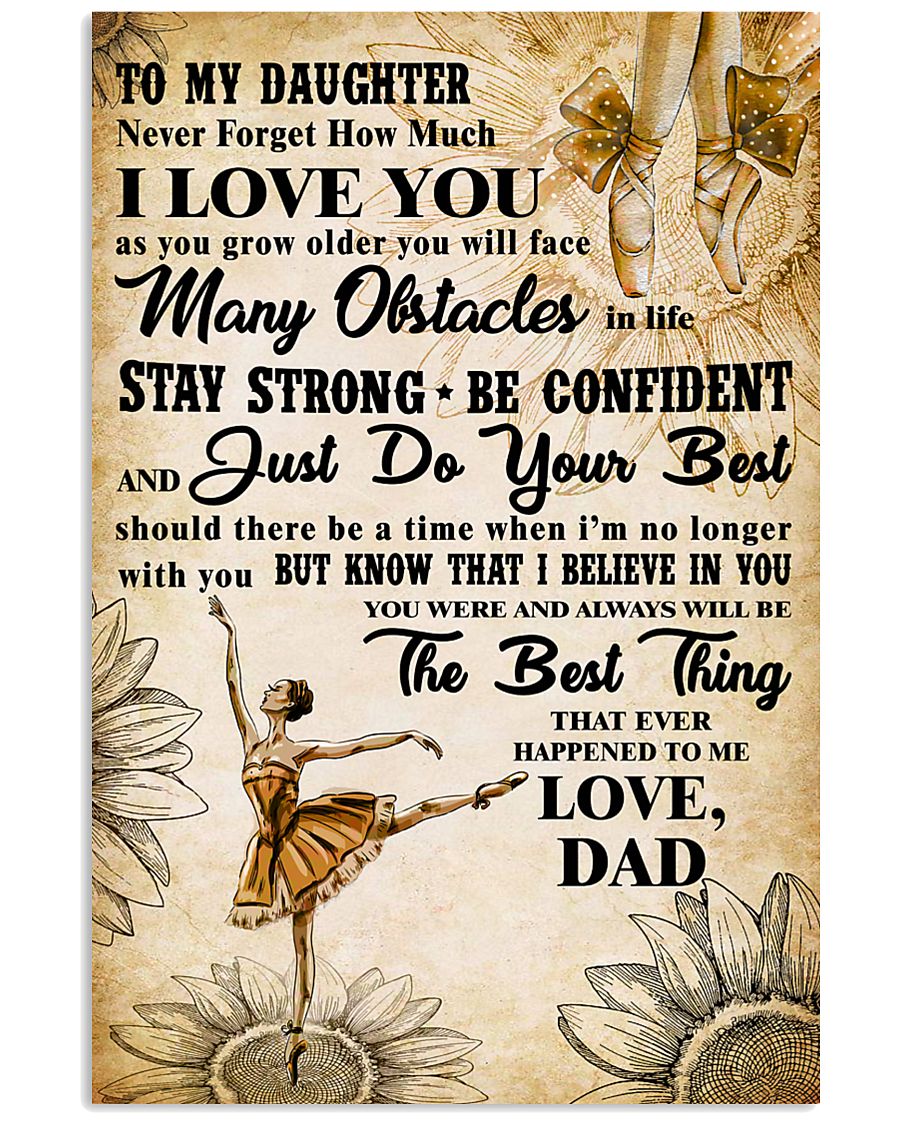 TO MY DAUGHTER
Never Forget How Much
I LOVE YOU
as you grow older you will face
Many Obstacles in life
STAY STRONG ★ BE CONFIDENT
AND Just Do Your Best
should there be a time when i'm no longer
with you BUT KNOW THAT I BELIEVE IN YOU
YOU WERE AND ALWAYS WILL BE
The Best Thing
THAT EVER
HAPPENED TO ME
LOVE,
DAD